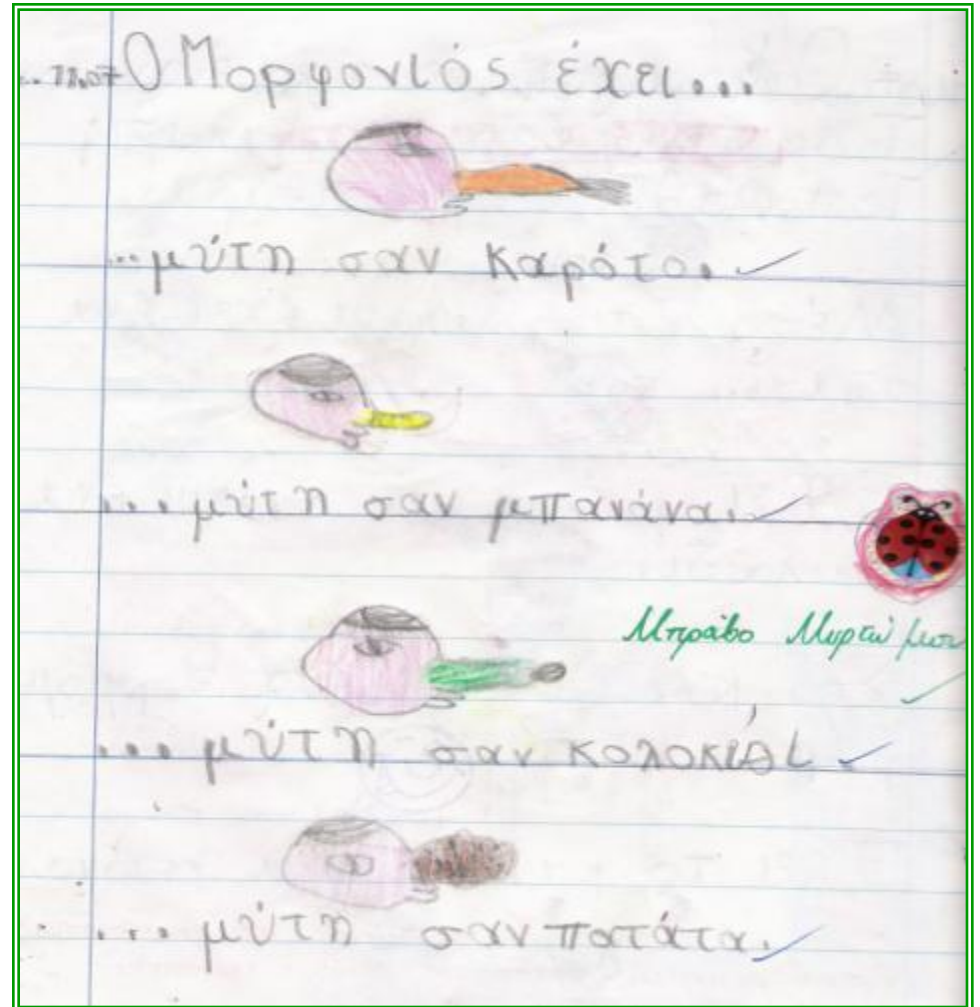 Ο Μορφονιός έχει...
...μύτη σαν καρότο.
...μύτη σαν μπανάνα.
Μπράβο Μυρτώ μου
...μύτη σαν κολοκιθι
...μύτη σαν πατάτα.